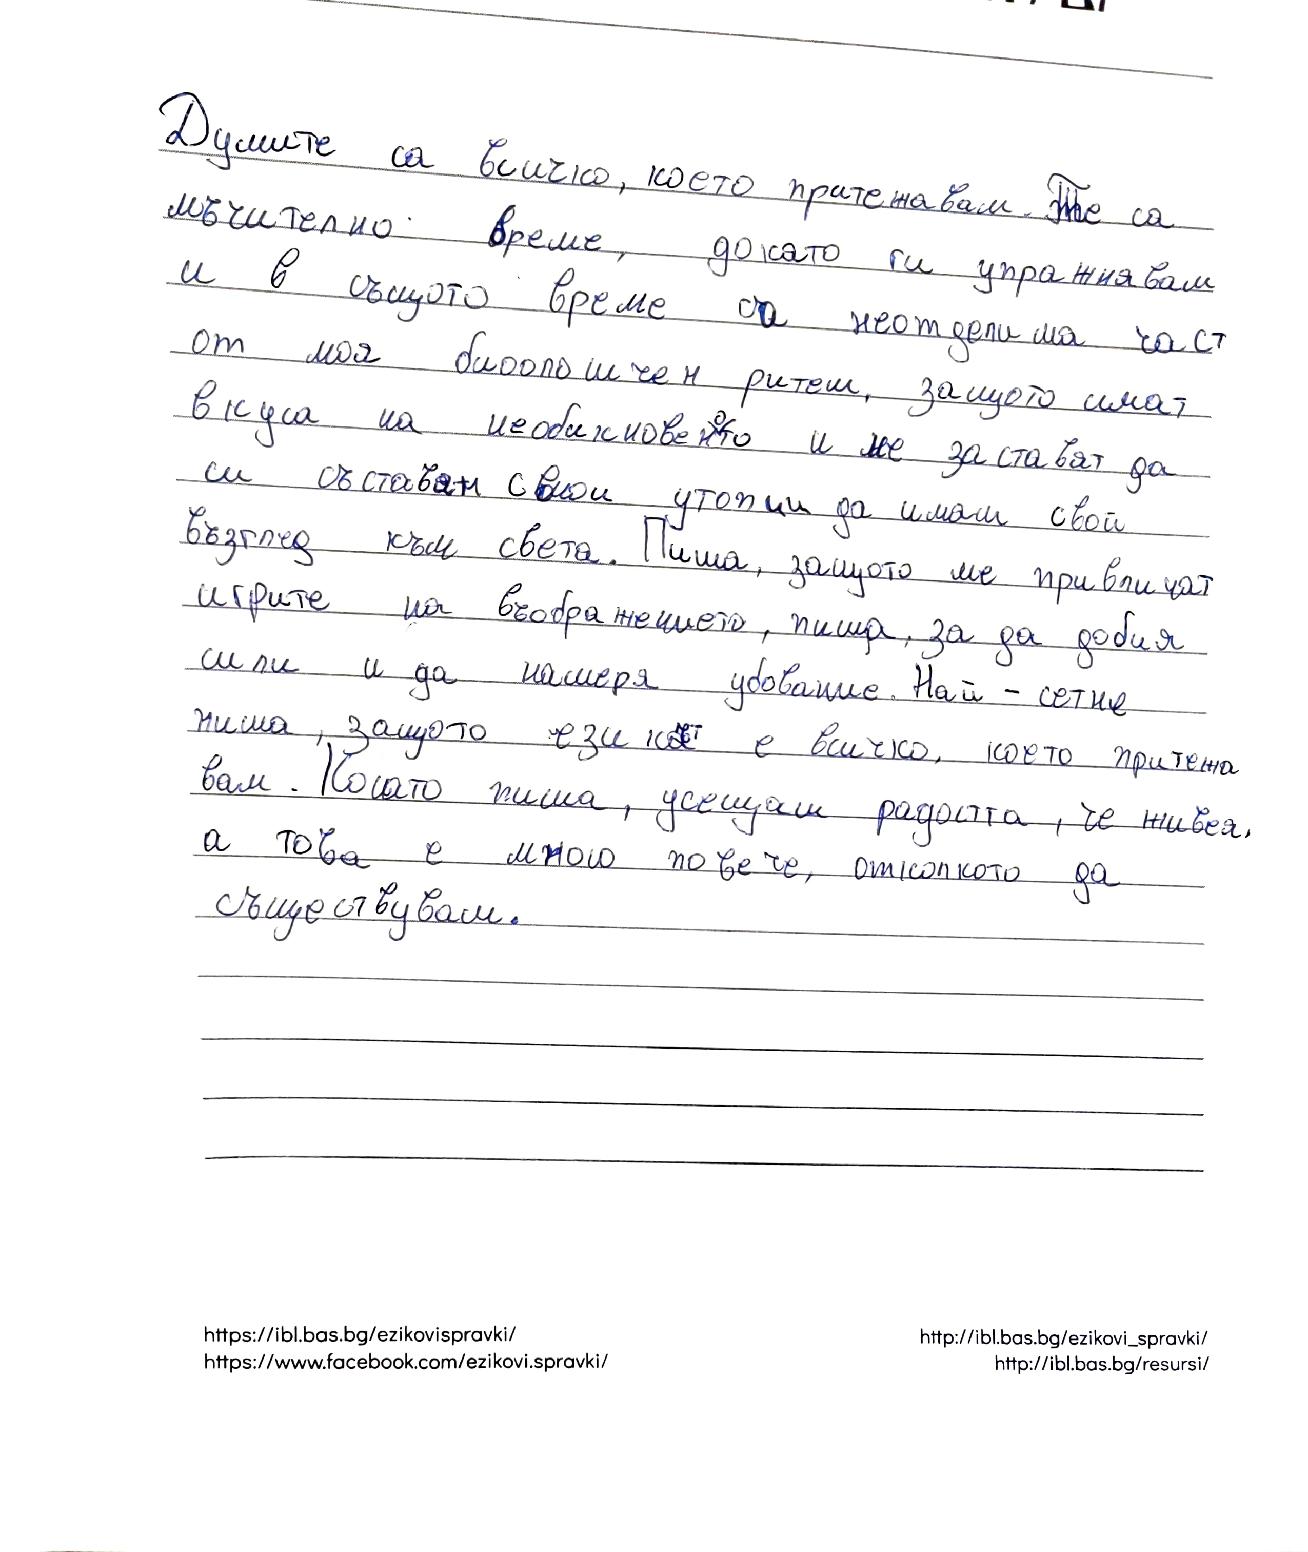 Думите са всичко, което притежавам. Те са
мъчително време, докато ги упражнявам
и в същото време са неотделима част
от моя биоологичен ритъм, защото имат
вкуса на необикновеното и ме заставят да
си съставям свои утопии да имам свой
възглед към света. Пиша, защото ме привличат
игрите на въображението, пиша, за да добия
сили и да намеря убование. Най - сетне
пиша, защото езикът е всичко, което притежа
вам. Когато пиша, усещам радостта, че живея,
а това е много повече, отколкото да
съществувам.
https://ibl.bas.bg/ezikovispravki/
https://www.facebook.com/ezikovi.spravki/
http://ibl.bas.bg/ezikovi_spravki/
http://ibl.bas.bg/resursi/